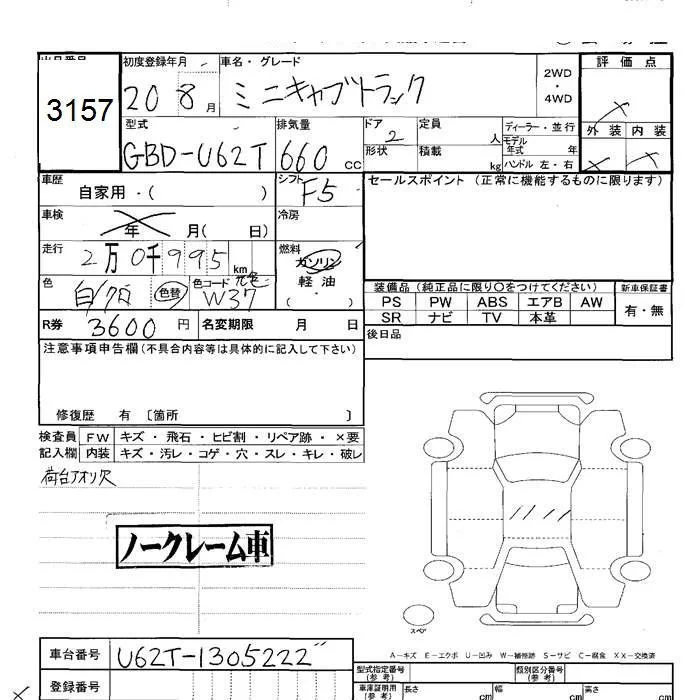 初度登録年月 車名・グレード
3157
20 8月 ミニキャブトラック
2WD
・
4WD
評価点
×
型式 排気量 ドア 定員 人 ディーラー・並行
GBD-U62T 660cc 2
形状 積載 kg モデル年式 年
ハンドル 左・右
外装 内装
× ×
車歴 自家用・( ) シフト F5
セールスポイント (正常に機能するものに限ります)
車検 年 月( 日) 冷房
走行 2万0千995km 燃料 ガソリン
軽油
( )
色 白/ 色替 色コード 元色
W37
装備品 (純正品に限り○をつけてください) 新車保証書
PS PW ABS エアB AW 有・無
SR ナビ TV 本革
R券 3600円 名変期限 月 日
後日品
注意事項申告欄(不具合内容等は具体的に記入して下さい)
修復歴 有 〔箇所 〕
検査員 FW キズ・飛石・ヒビ割・リペア跡・×要
記入欄 内装 キズ・汚レ・コゲ・穴・スレ・キレ・破レ
荷台アオリ穴
ノークレーム車
スペア
A-キズ E-エクボ U-凹み W-補修跡 S-サビ C-腐食 XX-交換済
車台番号 U62T-1305222
登録番号
型式指定番号
(参考)
類別区分番号
(参考)
車庫証明用
(参考)
長さ cm 幅 cm 高さ cm